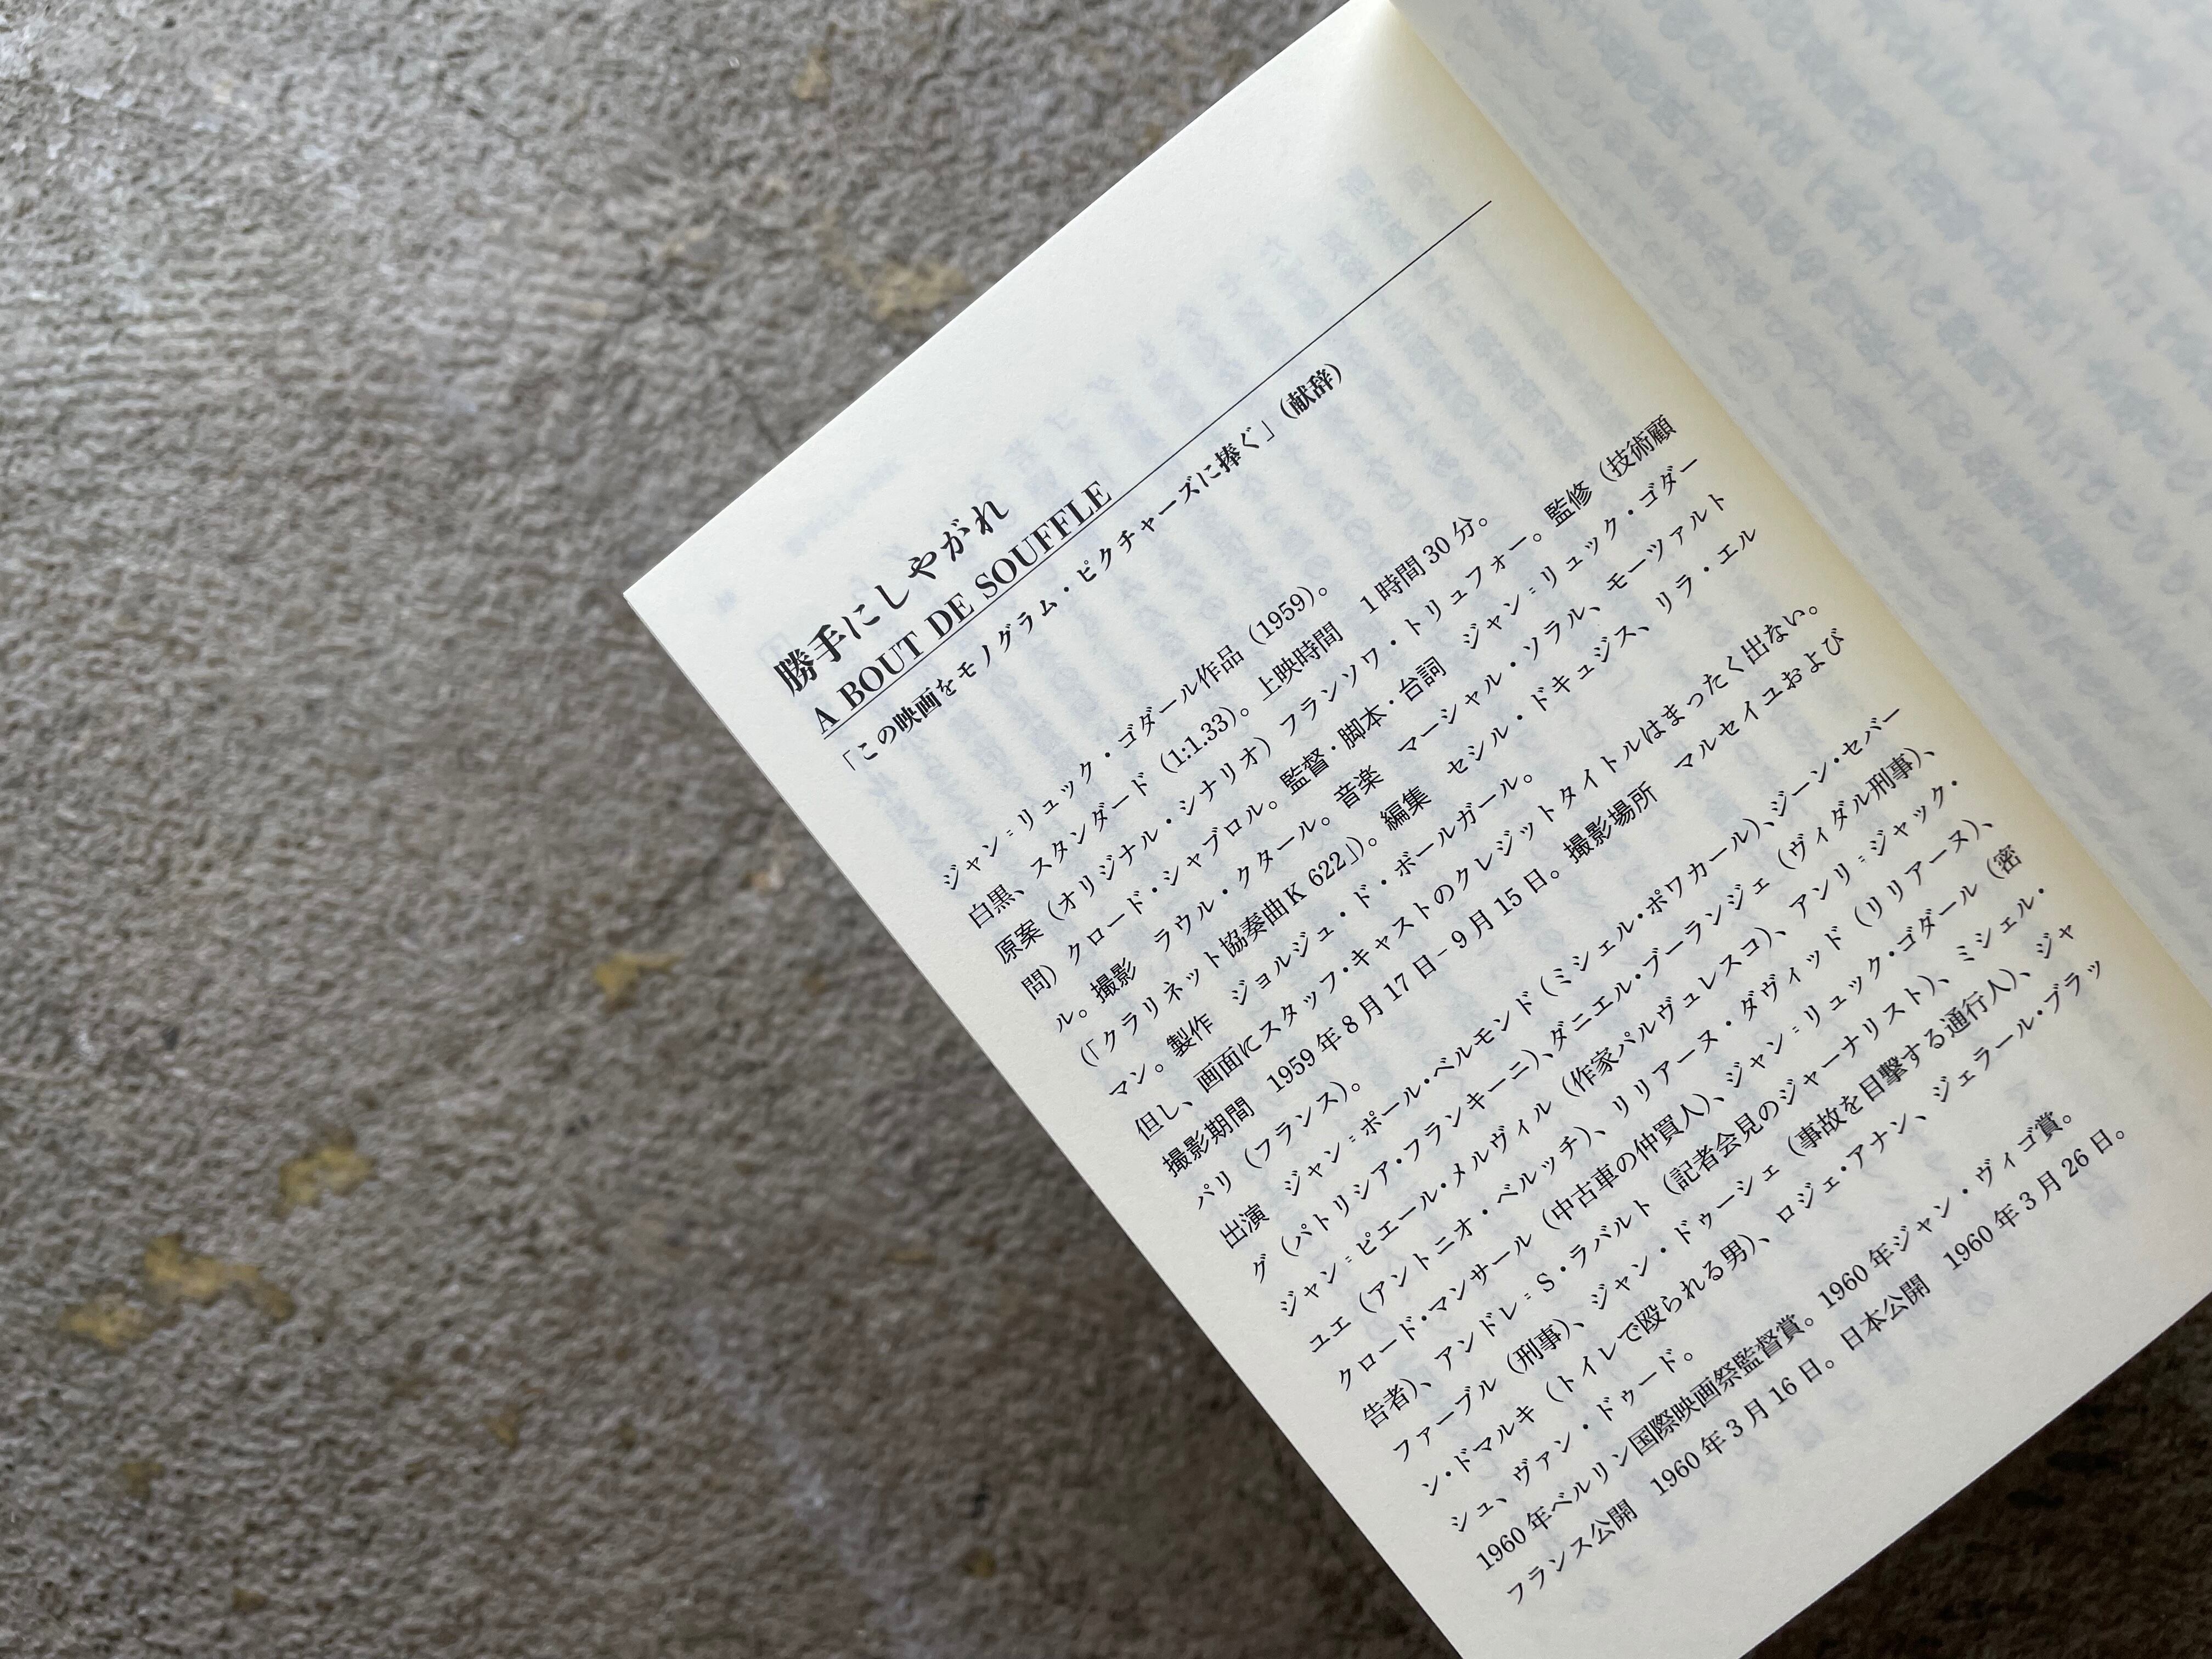 勝手にしやがれ
A BOUT DE SOUFFLE
「この映画をモノグラム・ピクチャーズに捧ぐ」（献辞）
ジャン゠リュック・ゴダール作品（1959）。
白黒、スタンダード（1:1.33）。上映時間　1時間30分。
原案（オリジナル・シナリオ）フランソワ・トリュフォー。監修（技術顧
問）クロード・シャブロル。監督・脚本・台詞　ジャン゠リュック・ゴダー
ル。撮影　ラウル・クタール。音楽　マーシャル・ソラル、モーツァルト
（「クラリネット協奏曲K 622」）。編集　セシル・ドキュジス、リラ・エル
マン。製作　ジョルジュ・ド・ボールガール。
但し、画面にスタッフ・キャストのクレジットタイトルはまったく出ない。
撮影期間　1959年8月17日－9月15日。撮影場所　マルセイユおよび
パリ（フランス）。
出演　ジャン゠ポール・ベルモンド（ミシェル・ポワカール）、ジーン・セバー
グ（パトリシア・フランキーニ）、ダニエル・ブーランジェ（ヴィダル刑事）、
ジャン゠ピエール・メルヴィル（作家パルヴュレスコ）、アンリ゠ジャック・
ユエ（アントニオ・ベルッチ）、リリアーヌ・ダヴィッド（リリアーヌ）、
クロード・マンサール（中古車の仲買人）、ジャン゠リュック・ゴダール（密
告者）、アンドレ゠S・ラバルト（記者会見のジャーナリスト）、ミシェル・
ファーブル（刑事）、ジャン・ドゥーシェ（事故を目撃する通行人）、ジャ
ン・ドマルキ（トイレで殴られる男）、ロジェ・アナン、ジェラール・ブラッ
シュ、ヴァン・ドゥード。
1960年ベルリン国際映画祭監督賞。1960年ジャン・ヴィゴ賞。
フランス公開　1960年3月16日。日本公開　1960年3月26日。